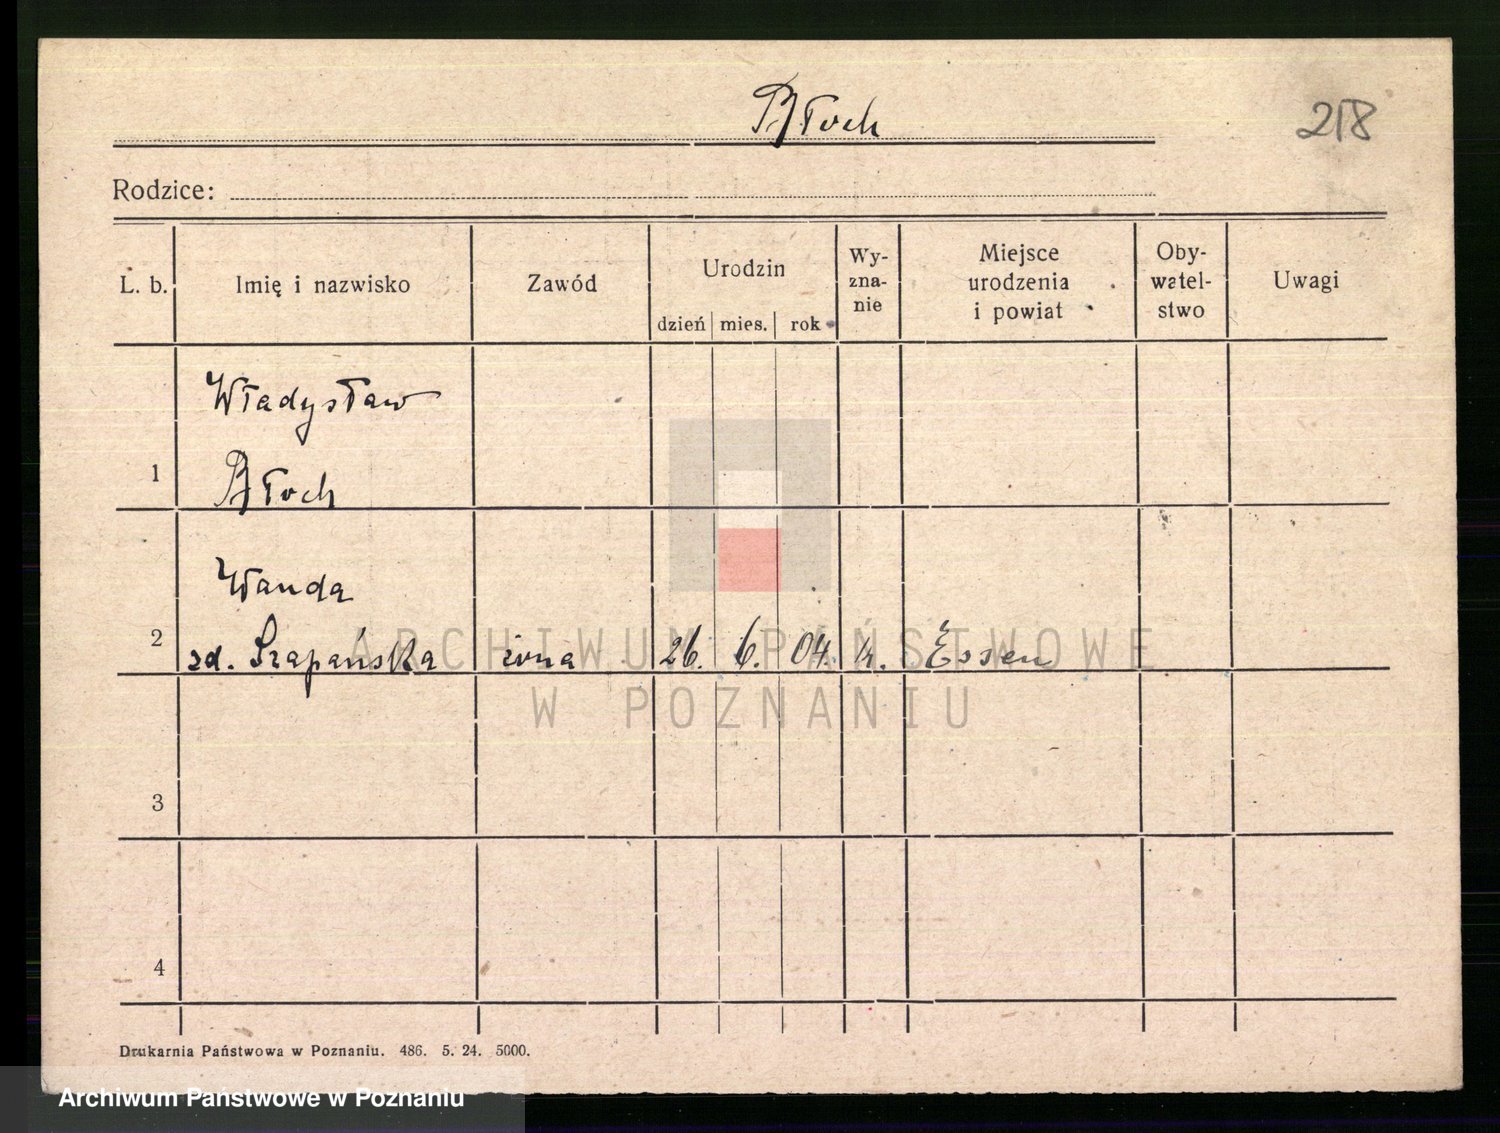 Błoch
218
Rodzice:
L. b.
Imię i nazwisko
Zawód
Urodzin
dzień
mies.
rok
Wy-
zna-
nie
Miejsce
urodzenia
i powiat
Oby-
watel-
stwo
Uwagi
Władysław
1
Błoch
Wanda
2
zd. Szapańska żona 26. 6. 04. k. Essen
3
4
ARCHIWUM PAŃSTWOWE
W POZNANIU
Drukarnia Państwowa w Poznaniu. 486. 5. 24. 5000.
Archiwum Państwowe w Poznaniu